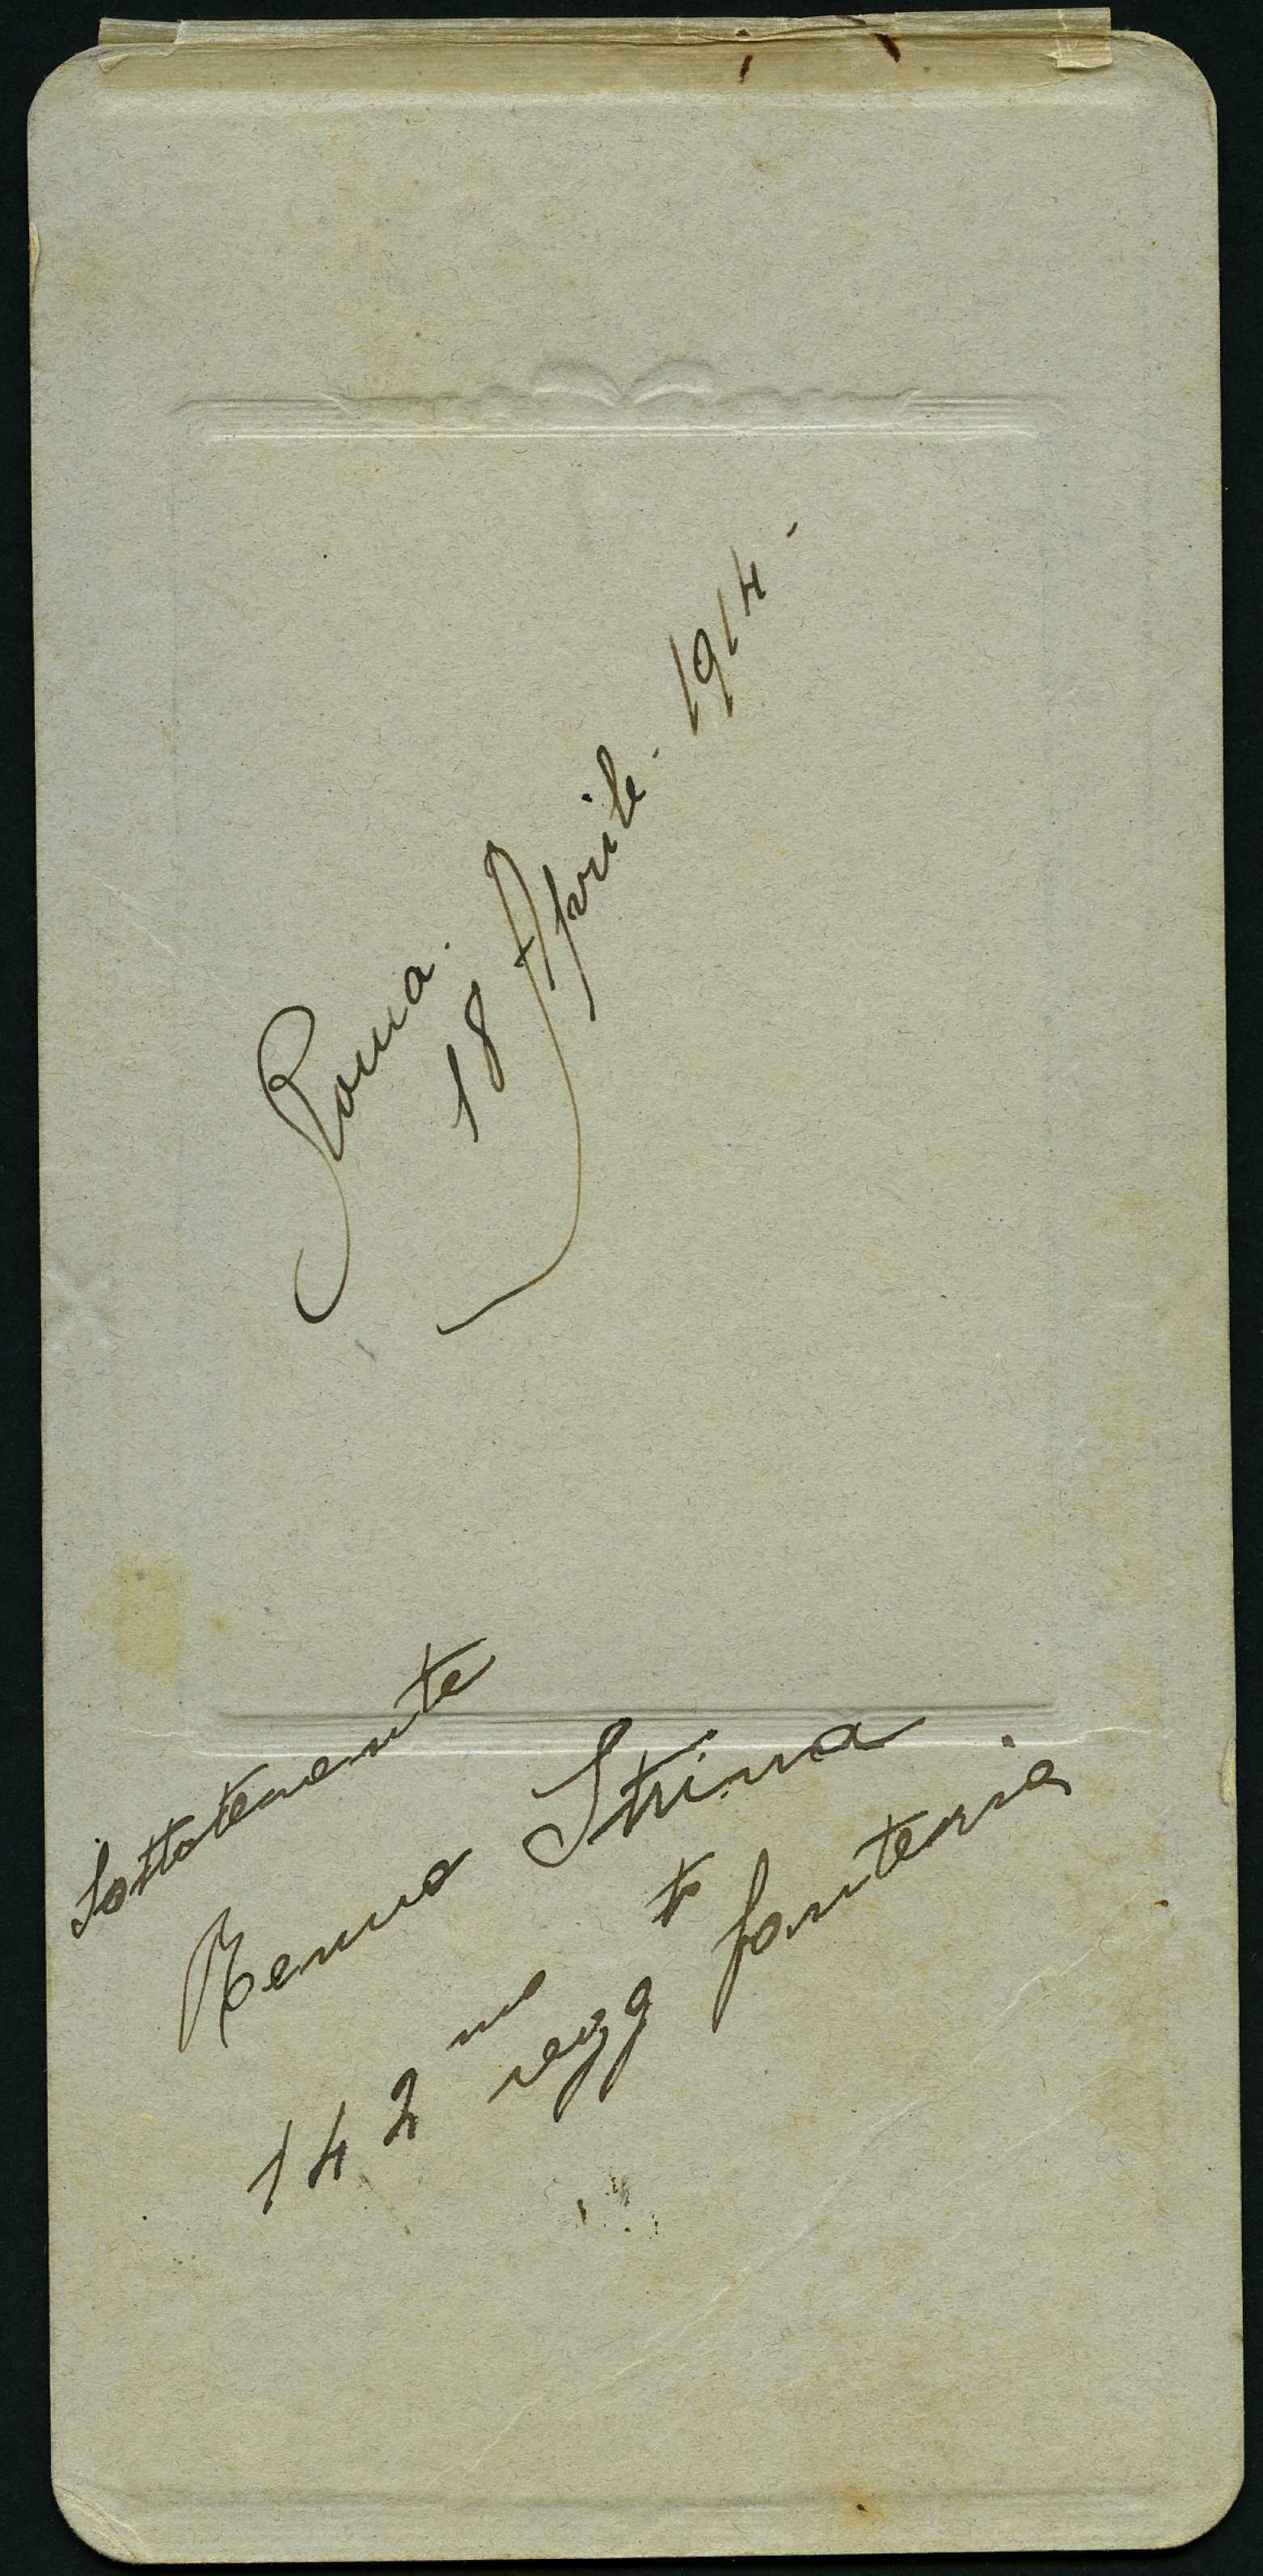 Roma.
18 Aprile. 1914.
Sottotenente
Remo Strina
142mo regg to fanteria